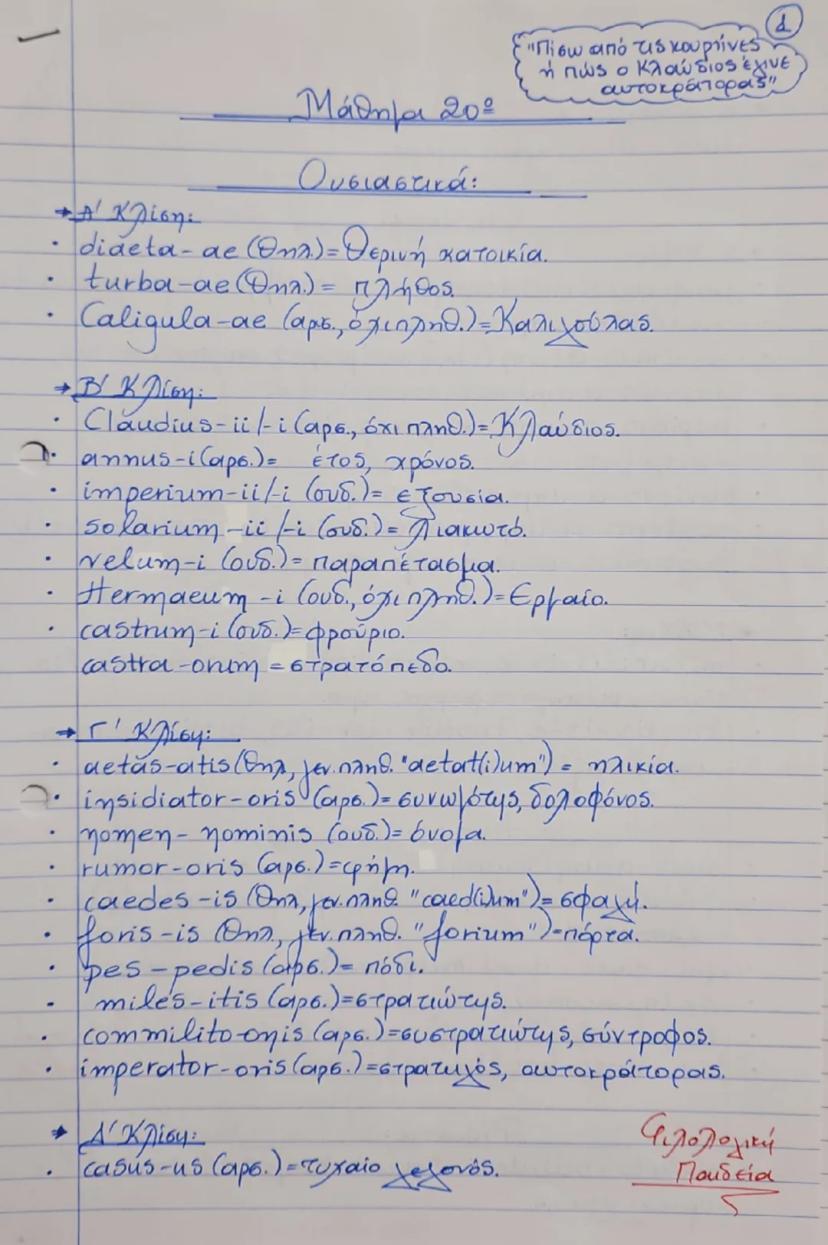 1
"Πίσω από τις κουρτίνες
ή πώς ο Κλαύδιος έγινε
αυτοκράτορας"
Μάθημα 20º
Ουσιαστικά:
→ Α' Κλίση:
· diaeta-ae (θηλ.)= Θερινή κατοικία.
· turba-ae (θηλ.)= πλήθος.
· Caligula-ae (αρσ., όχι πληθ.)= Καλιγούλας.
→ Β' Κλίση:
· Claudius-ii/-i (αρσ., όχι πληθ.)= Κλαύδιος.
· annus-i (αρσ.)= έτος, χρόνος.
· imperium-ii/-i (ουδ.)= εξουσία.
· solarium-ii/-i (ουδ.)= λιακωτό.
· velum-i (ουδ.)= παραπέτασμα.
· Hermaeum-i (ουδ., όχι πληθ.)= Ερμαίο.
· castrum-i (ουδ.)= φρούριο.
castra-orum = στρατόπεδο.
→ Γ' Κλίση:
· aetas-atis (θηλ., γεν. πληθ. "aetat(i)um") = ηλικία.
· insidiator-oris (αρσ.)= συνωμότης, δολοφόνος.
· nomen-nominis (ουδ.)= όνομα.
· rumor-oris (αρσ.)= φήμη.
· caedes-is (θηλ., γεν. πληθ. "caed(i)um")= σφαγή.
· foris-is (θηλ., γεν. πληθ. "forium")= πόρτα.
· pes-pedis (αρσ.)= πόδι.
· miles-itis (αρσ.)= στρατιώτης.
· commilito-onis (αρσ.)= συστρατιώτης, σύντροφος.
· imperator-oris (αρσ.)= στρατηγός, αυτοκράτορας.
→ Δ' Κλίση:
· casus-us (αρσ.)= τυχαίο γεγονός.
Φιλολογική
Παιδεία